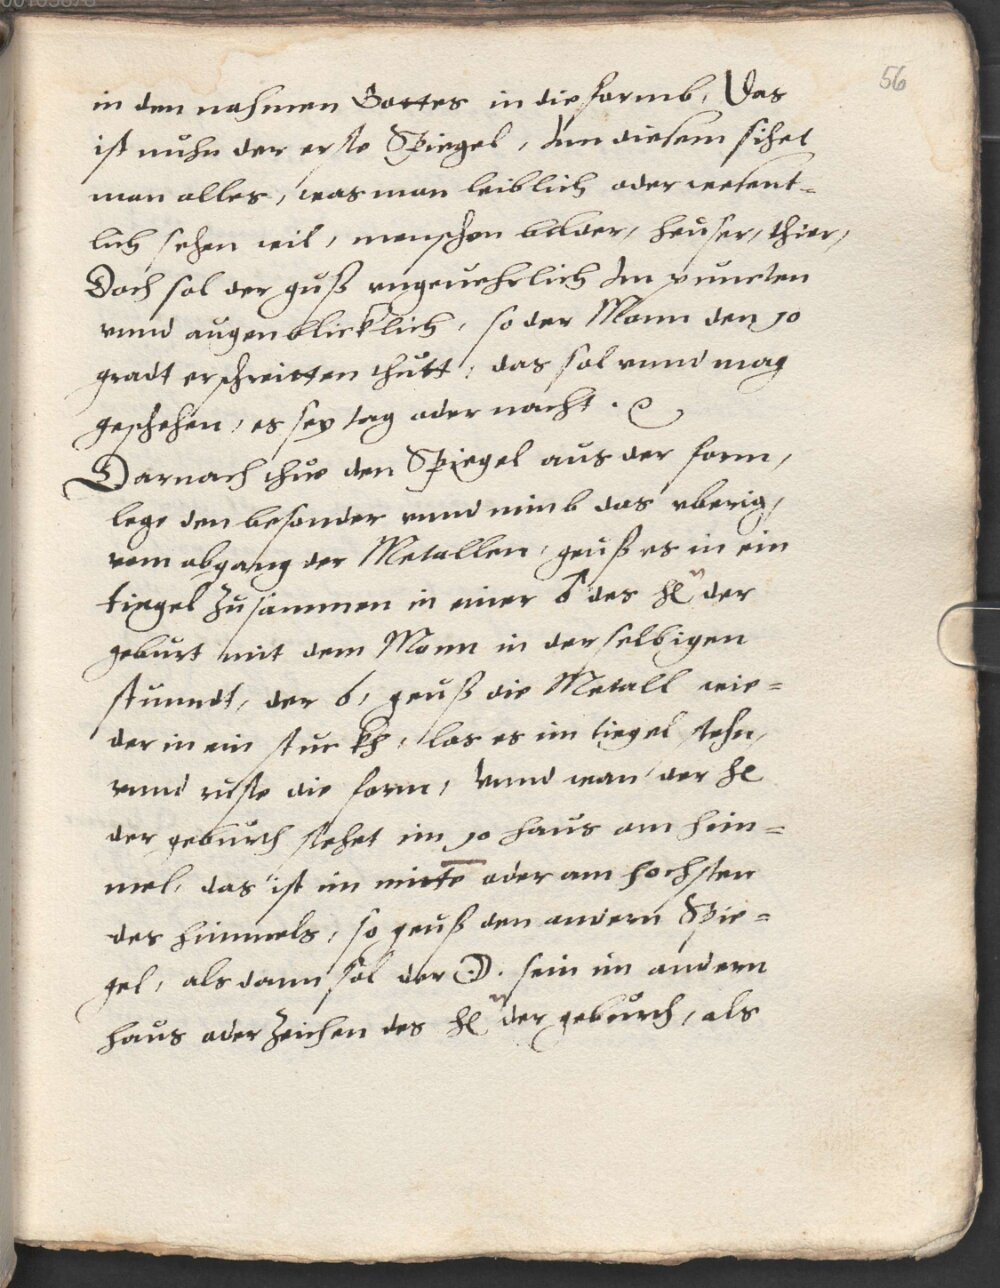 56
in den nahmen Gottes in die formb, Das
ist nuhn der erste Spiegel, Inn diesem sihet
man alles, was man leiblich oder wesent=
lich sehen wil, menschen bilder, heuser, thier,
Doch sol der guß ungeuehrlich Im puncten
unnd augenblicklich, so der Monn den 10
gradt erschreitten thutt, das sol unnd mag
geschehen, es sey tag oder nacht.
Darnach thue den Spiegel aus der form,
lege den besonder unnd nimb das uberig,
vom abgang der Metallen, geuß es in ein
tiegel zusammen in einer des der
geburt mit dem Monn in derselbigen
stunndt, der geuß die Metall wie=
der in ein stuckh, las es im tiegel stehn,
unnd ruste die form, Unnd wan der
der geburth stehet im 10 haus am him=
mel, das ist im mitte oder am hochsten
des himmels, so geuß den andern Spie=
gel, als dann sol der sein im andern
haus oder Zeichen des der geburth, als